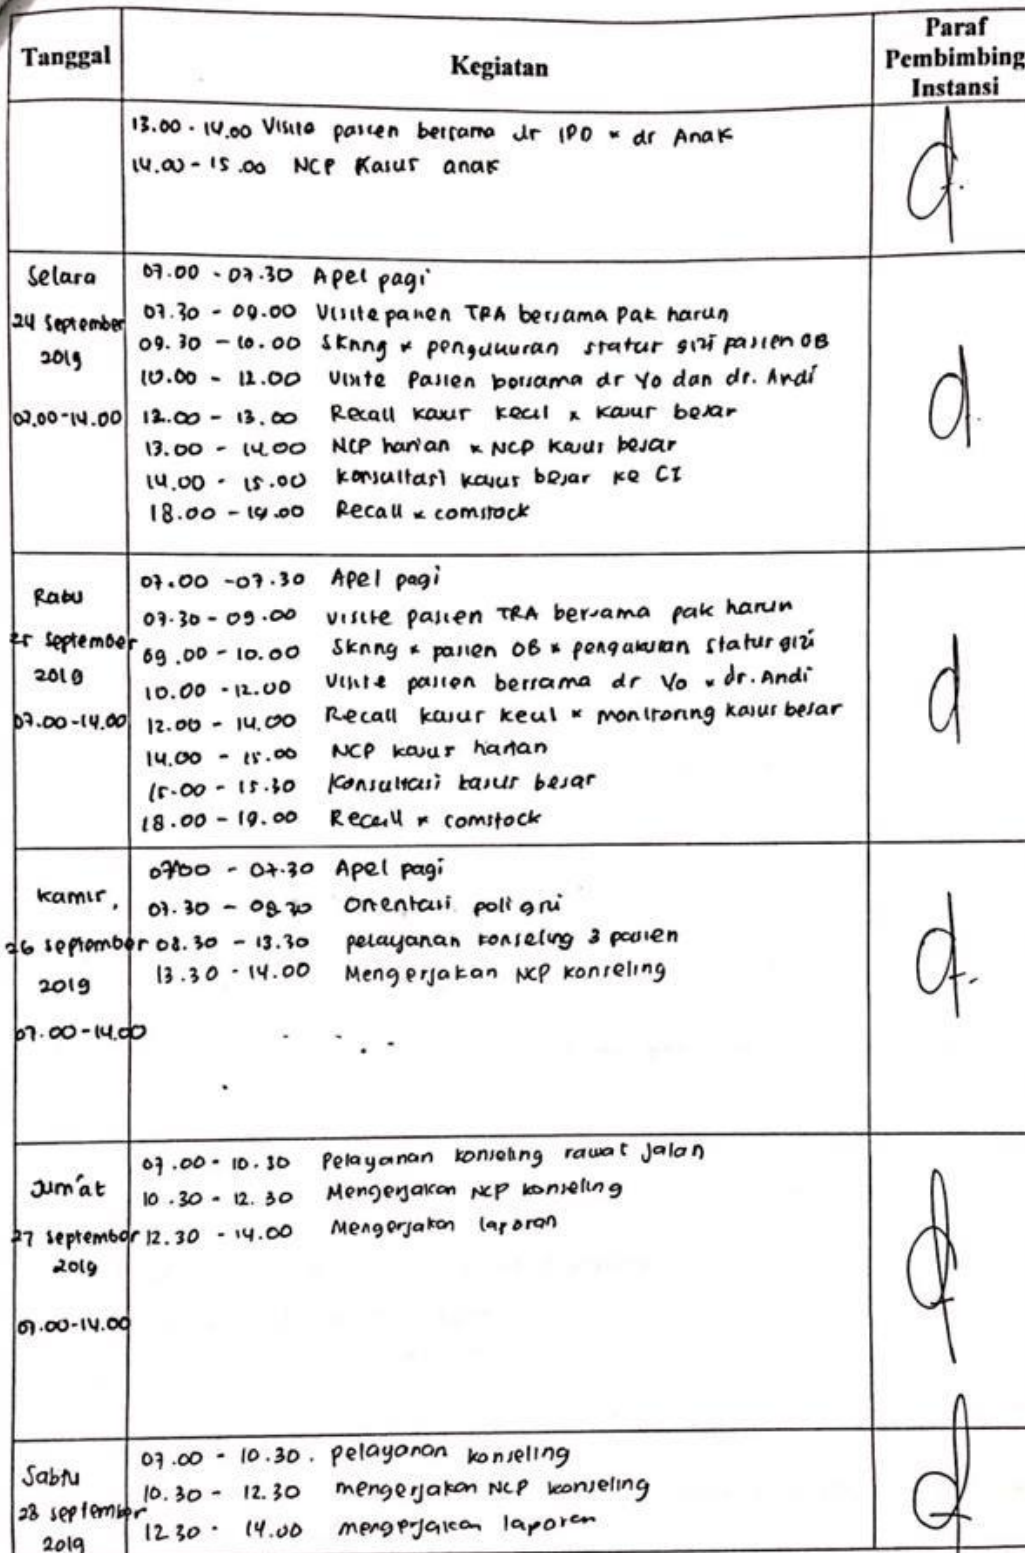 Tanggal
Kegiatan
Paraf
Pembimbing
Instansi
13.00 - 14.00 Visite pasien bersama dr IPD & dr Anak
14.00 - 15.00 NCP Kasus anak
Selasa
24 September
2019
07.00-14.00
07.00 - 07.30 Apel pagi
07.30 - 09.00 Visite pasien TRA bersama Pak harun
09.30 - 10.00 Skring & pengukuran status gizi pasien OB
10.00 - 12.00 Visite Pasien bersama dr Yo dan dr. Andi
12.00 - 13.00 Recall kasus kecil & kasus besar
13.00 - 14.00 NCP harian & NCP kasus besar
14.00 - 15.00 konsultasi kasus besar ke CI
18.00 - 19.00 Recall & comstock
Rabu
25 September
2019
07.00-14.00
07.00 - 07.30 Apel pagi
07.30 - 09.00 visite pasien TRA bersama pak harun
09.00 - 10.00 Skring & pasien OB & pengukuran status gizi
10.00 - 12.00 Visite pasien bersama dr Yo & dr. Andi
12.00 - 14.00 Recall kasus kecil & monitoring kasus besar
14.00 - 15.00 NCP kasus harian
15.00 - 15.30 Konsultasi kasus besar
18.00 - 19.00 Recall & comstock
kamis,
26 september
2019
07.00-14.00
07.00 - 07.30 Apel pagi
07.30 - 08.30 Orientasi poli gizi
08.30 - 13.30 pelayanan konseling 3 pasien
13.30 - 14.00 Mengerjakan NCP konseling
Jum'at
27 september
2019
07.00-14.00
07.00 - 10.30 Pelayanan konseling rawat jalan
10.30 - 12.30 Mengerjakan NCP konseling
12.30 - 14.00 Mengerjakan laporan
Sabtu
28 september
2019
07.00 - 10.30. pelayanan konseling
10.30 - 12.30 mengerjakan NCP konseling
12.30 - 14.00 mengerjakan laporan